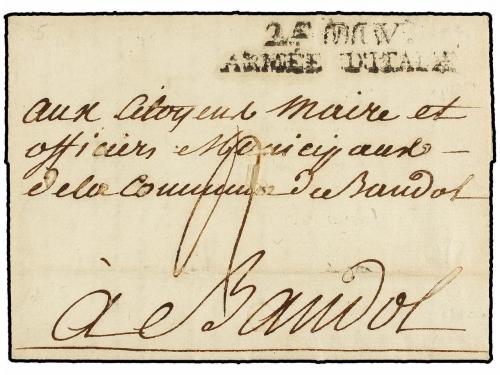 2E DIV.
ARMÉE D'ITALIE
aux Citoyens Maire et
officiers Municipaux
de la Commune de Bandol
à Bandol